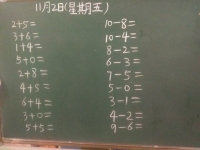 11月2日(星期五)
2+5=
3+6=
1+4=
5+0=
2+8=
4+5=
6+4=
3+0=
5+5=
10-8=
10-4=
8-2=
6-3=
7-5=
5-0=
3-1=
4-2=
9-6=